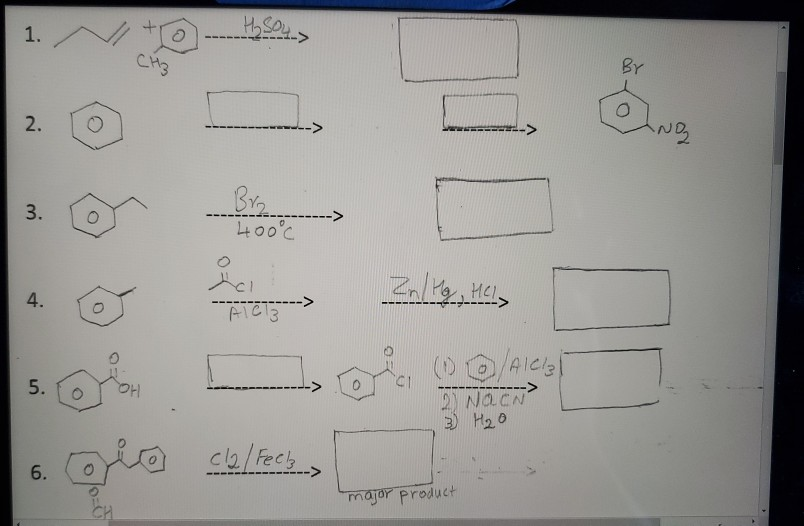 1. + CH3 H2SO4
2. Br NO2
3. Br2 400°C
4. O Cl AlCl3 Zn/Hg, HCl
5. O OH O Cl (1) /AlCl3 2) NaCN 3) H2O
6. O Cl2/FeCl3 major product